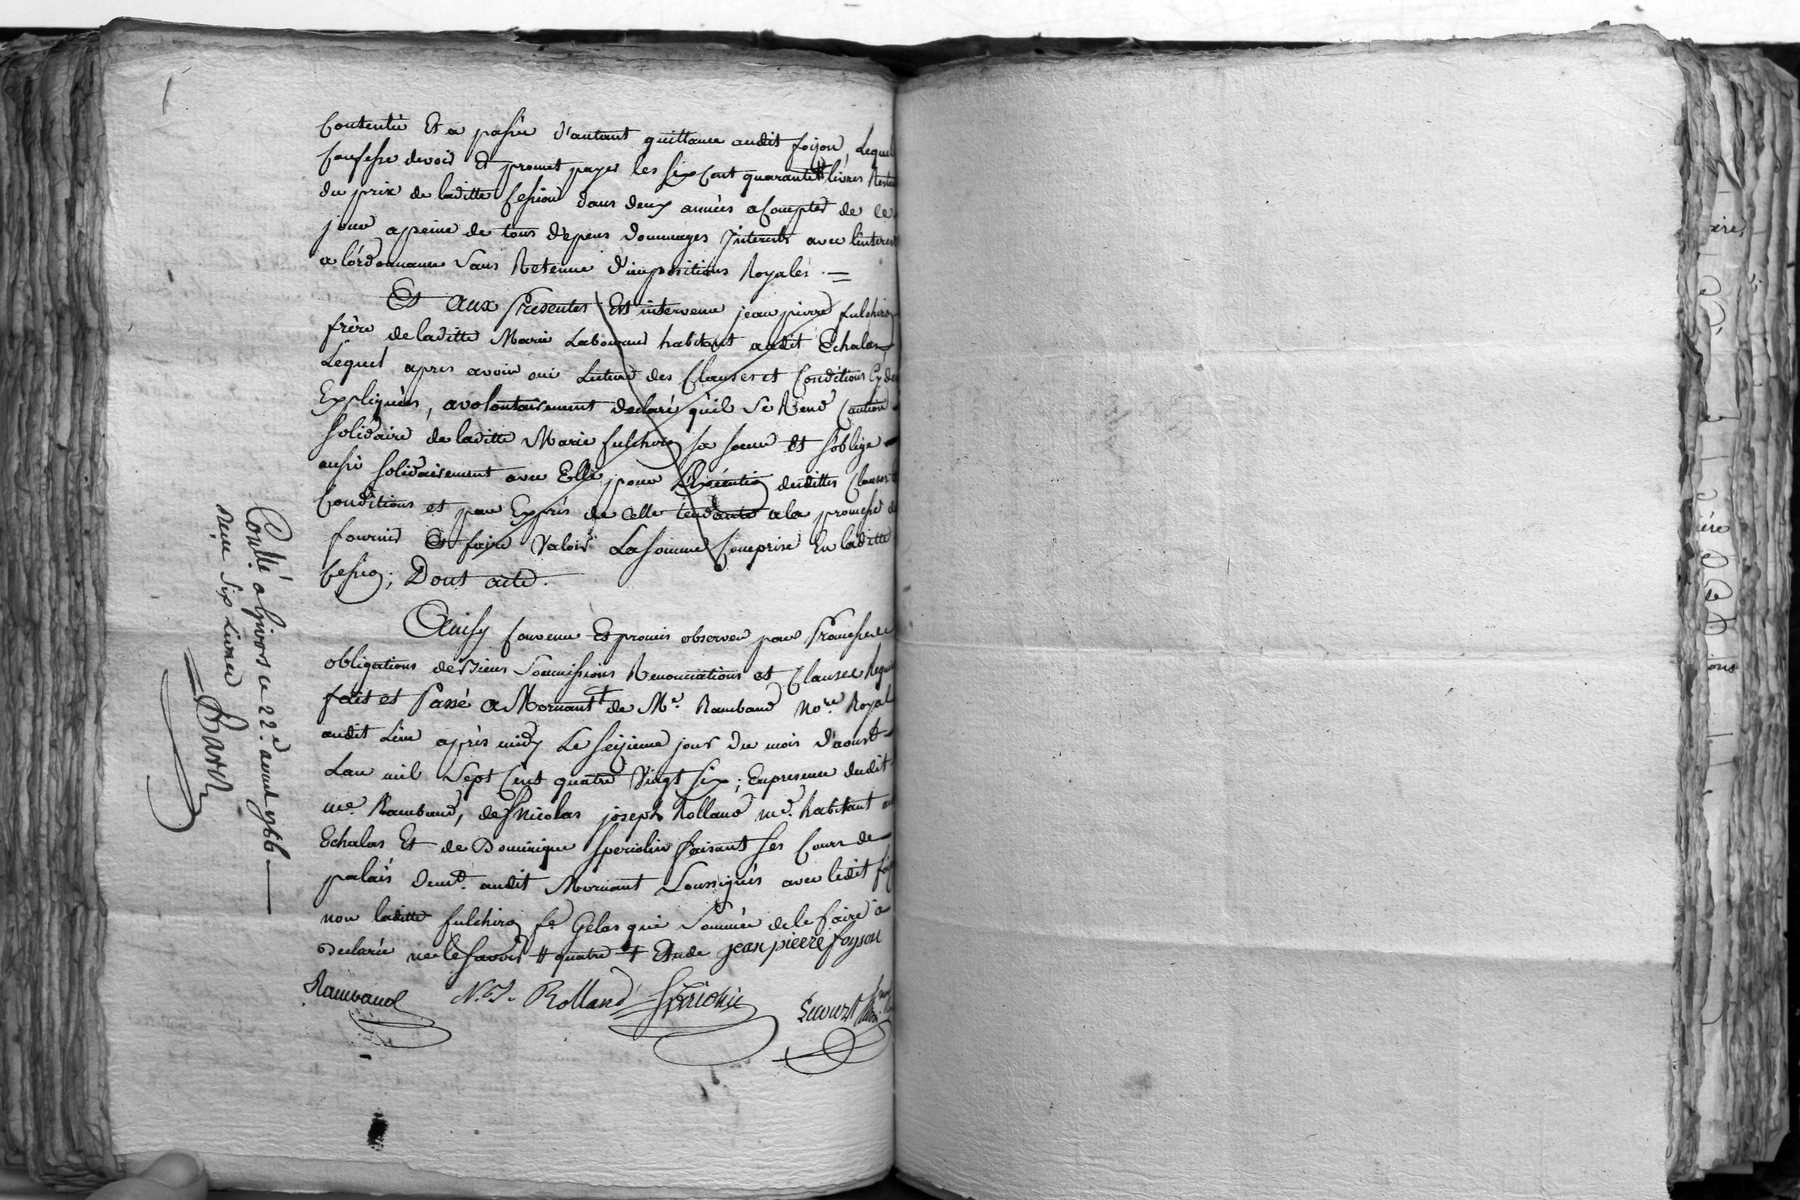 Contentée Et a passée d'autant quittance audit foijon, Lequel
Confesse devoir Et promet payer les six Cent quarante livres Restant
du prix de laditte Cession dans deux années a Compter de ce
jour apeine de tous depens dommages Interests avec l'interest
a l'ordonnance sans Retenue d'impositions Royales. =
Et aux Presentes Est intervenu jean pierre fulchiron
frère de laditte Marie Laboureur habitant audit Echalas,
Lequel apres avoir oui Lecture des Clauses et Conditions Cy de
Expliquées, a volontairement declaré qu'il se Rend Caution
solidaire de laditte Marie fulchiron sa soeur et s'oblige
aussi solidairement avec Elle pour L'Execution desdittes Clauses
Conditions et par Exprès de celle tendante a la promesse de
fournir Et faire Valoir La somme Comprise En laditte
Cession; Dont acte.
Ainsy Convenu Et promis observer par Promesses
obligations de Biens Soumissions Renonciations et Clauses Requises
fait et Passé a Mornant de Me. Rambaud Nore. Royal
audit Lieu après midy Le seizieme jour du mois d'aoust
Lan mil sept Cent quatre Vingt six; En presence dudit
me. Rambaud, de Sr Nicolas joseph Rolland md. habitant
Echalas Et de Dominique Speriolin faisant ses Cours de
palais demt. audit Mornant Soussignés avec ledit
non laditte fulchiron fe. Gelas qui Sommée de le faire a
Declarée ne le savoir # quatre # Et de jean pierre foyson
Rambaud N. J. Rolland
Conllé a Givors ce 22e. aoust 1786
Reçu six Livres